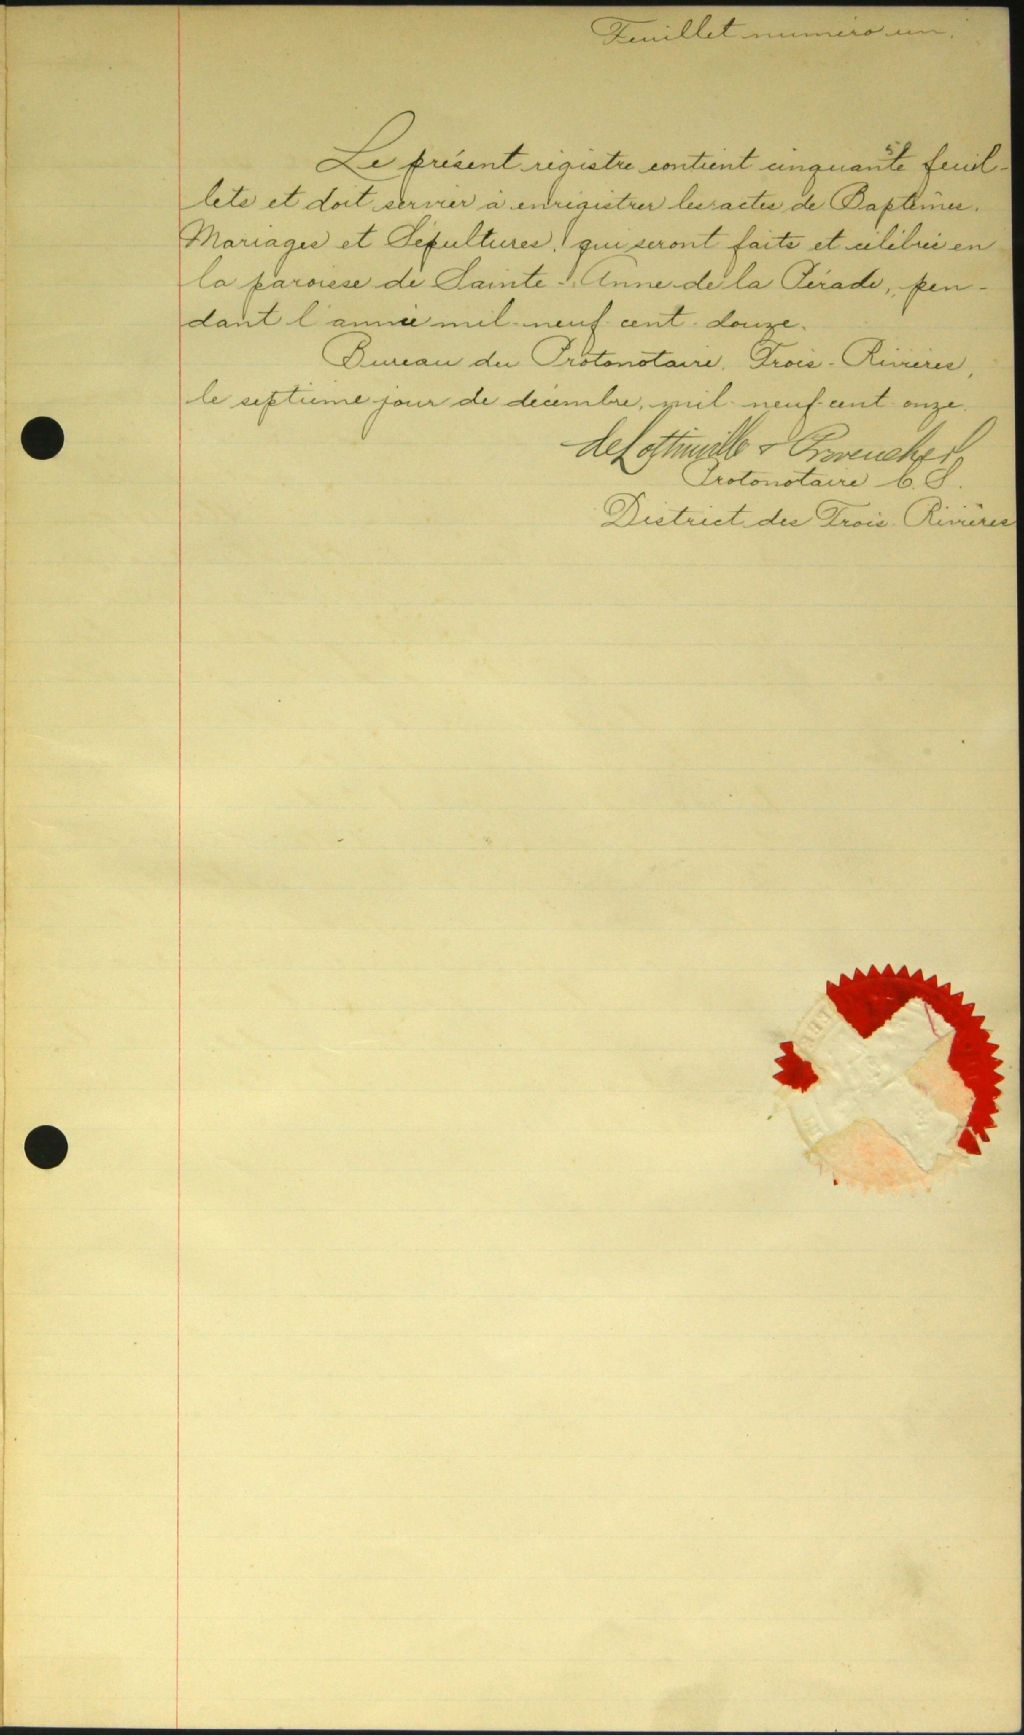 Feuillet numéro un.
Le présent registre contient cinquante feuil-
lets et doit servir à enregistrer les actes de Baptêmes.
Mariages et Sépultures, qui seront faits et célébrés en
la paroisse de Sainte-Anne de la Pérade, pen-
dant l'année mil neuf cent douze.
Bureau du Protonotaire, Trois-Rivières,
le septième jour de décembre, mil neuf cent onze.
de Lottinville & Provencher
Protonotaire C. S.
District des Trois Rivières